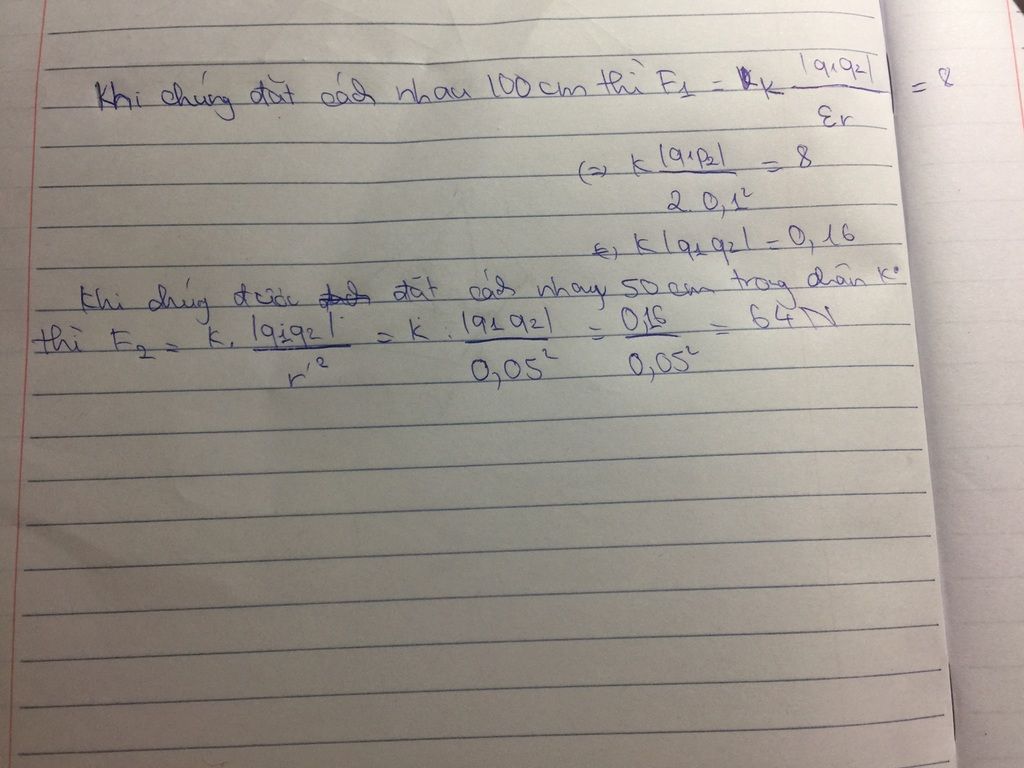 Khi chúng đặt cách nhau 100cm thì F₁ = k |q₁q₂| / εr = 8
(=) k |q₁q₂| / 2.0,1² = 8
(=) k|q₁q₂| = 0,16
Khi chúng được đặt cách nhau 50cm trong chân k²
thì F₂ = k. |q₁q₂| / r'² = k. |q₁q₂| / 0,05² = 0,16 / 0,05² = 64N